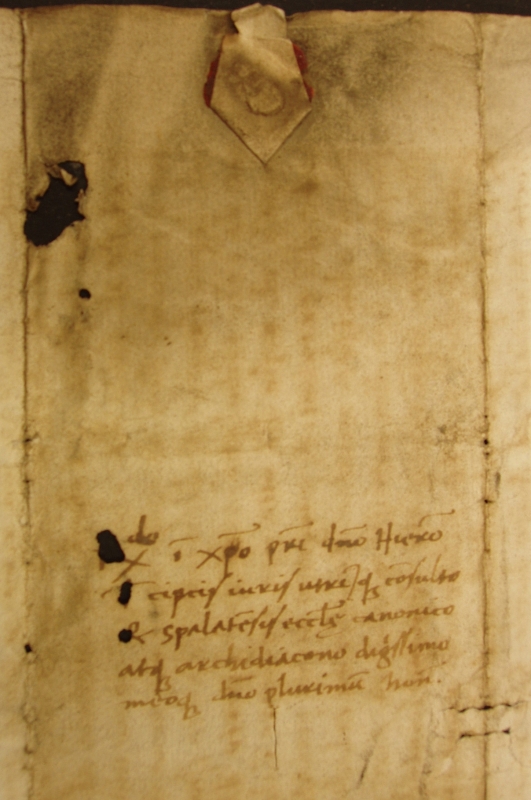 do
X ī xp̄o pr̄i dn̄o Hierō
cipcis iuris utriꝗ cōsulto
& spalatēsis eccl̄ę canonico
atqꝫ archidiacono dign̄ssimo
meoqꝫ dn̄o plurimū hon.